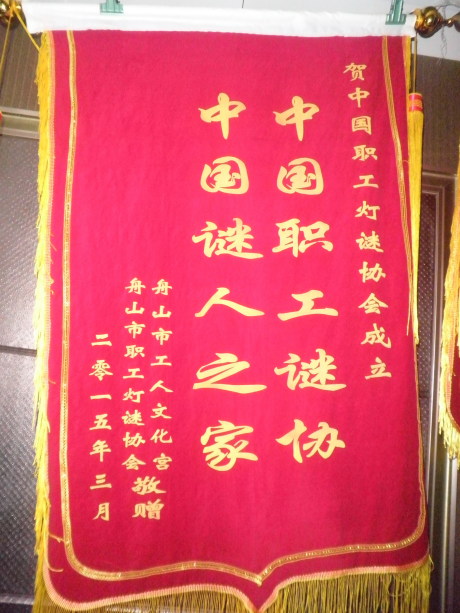 贺中国职工灯谜协会成立
中国职工谜协
中国谜人之家
舟山市工人文化宫
舟山市职工灯谜协会
敬赠
二零一五年三月